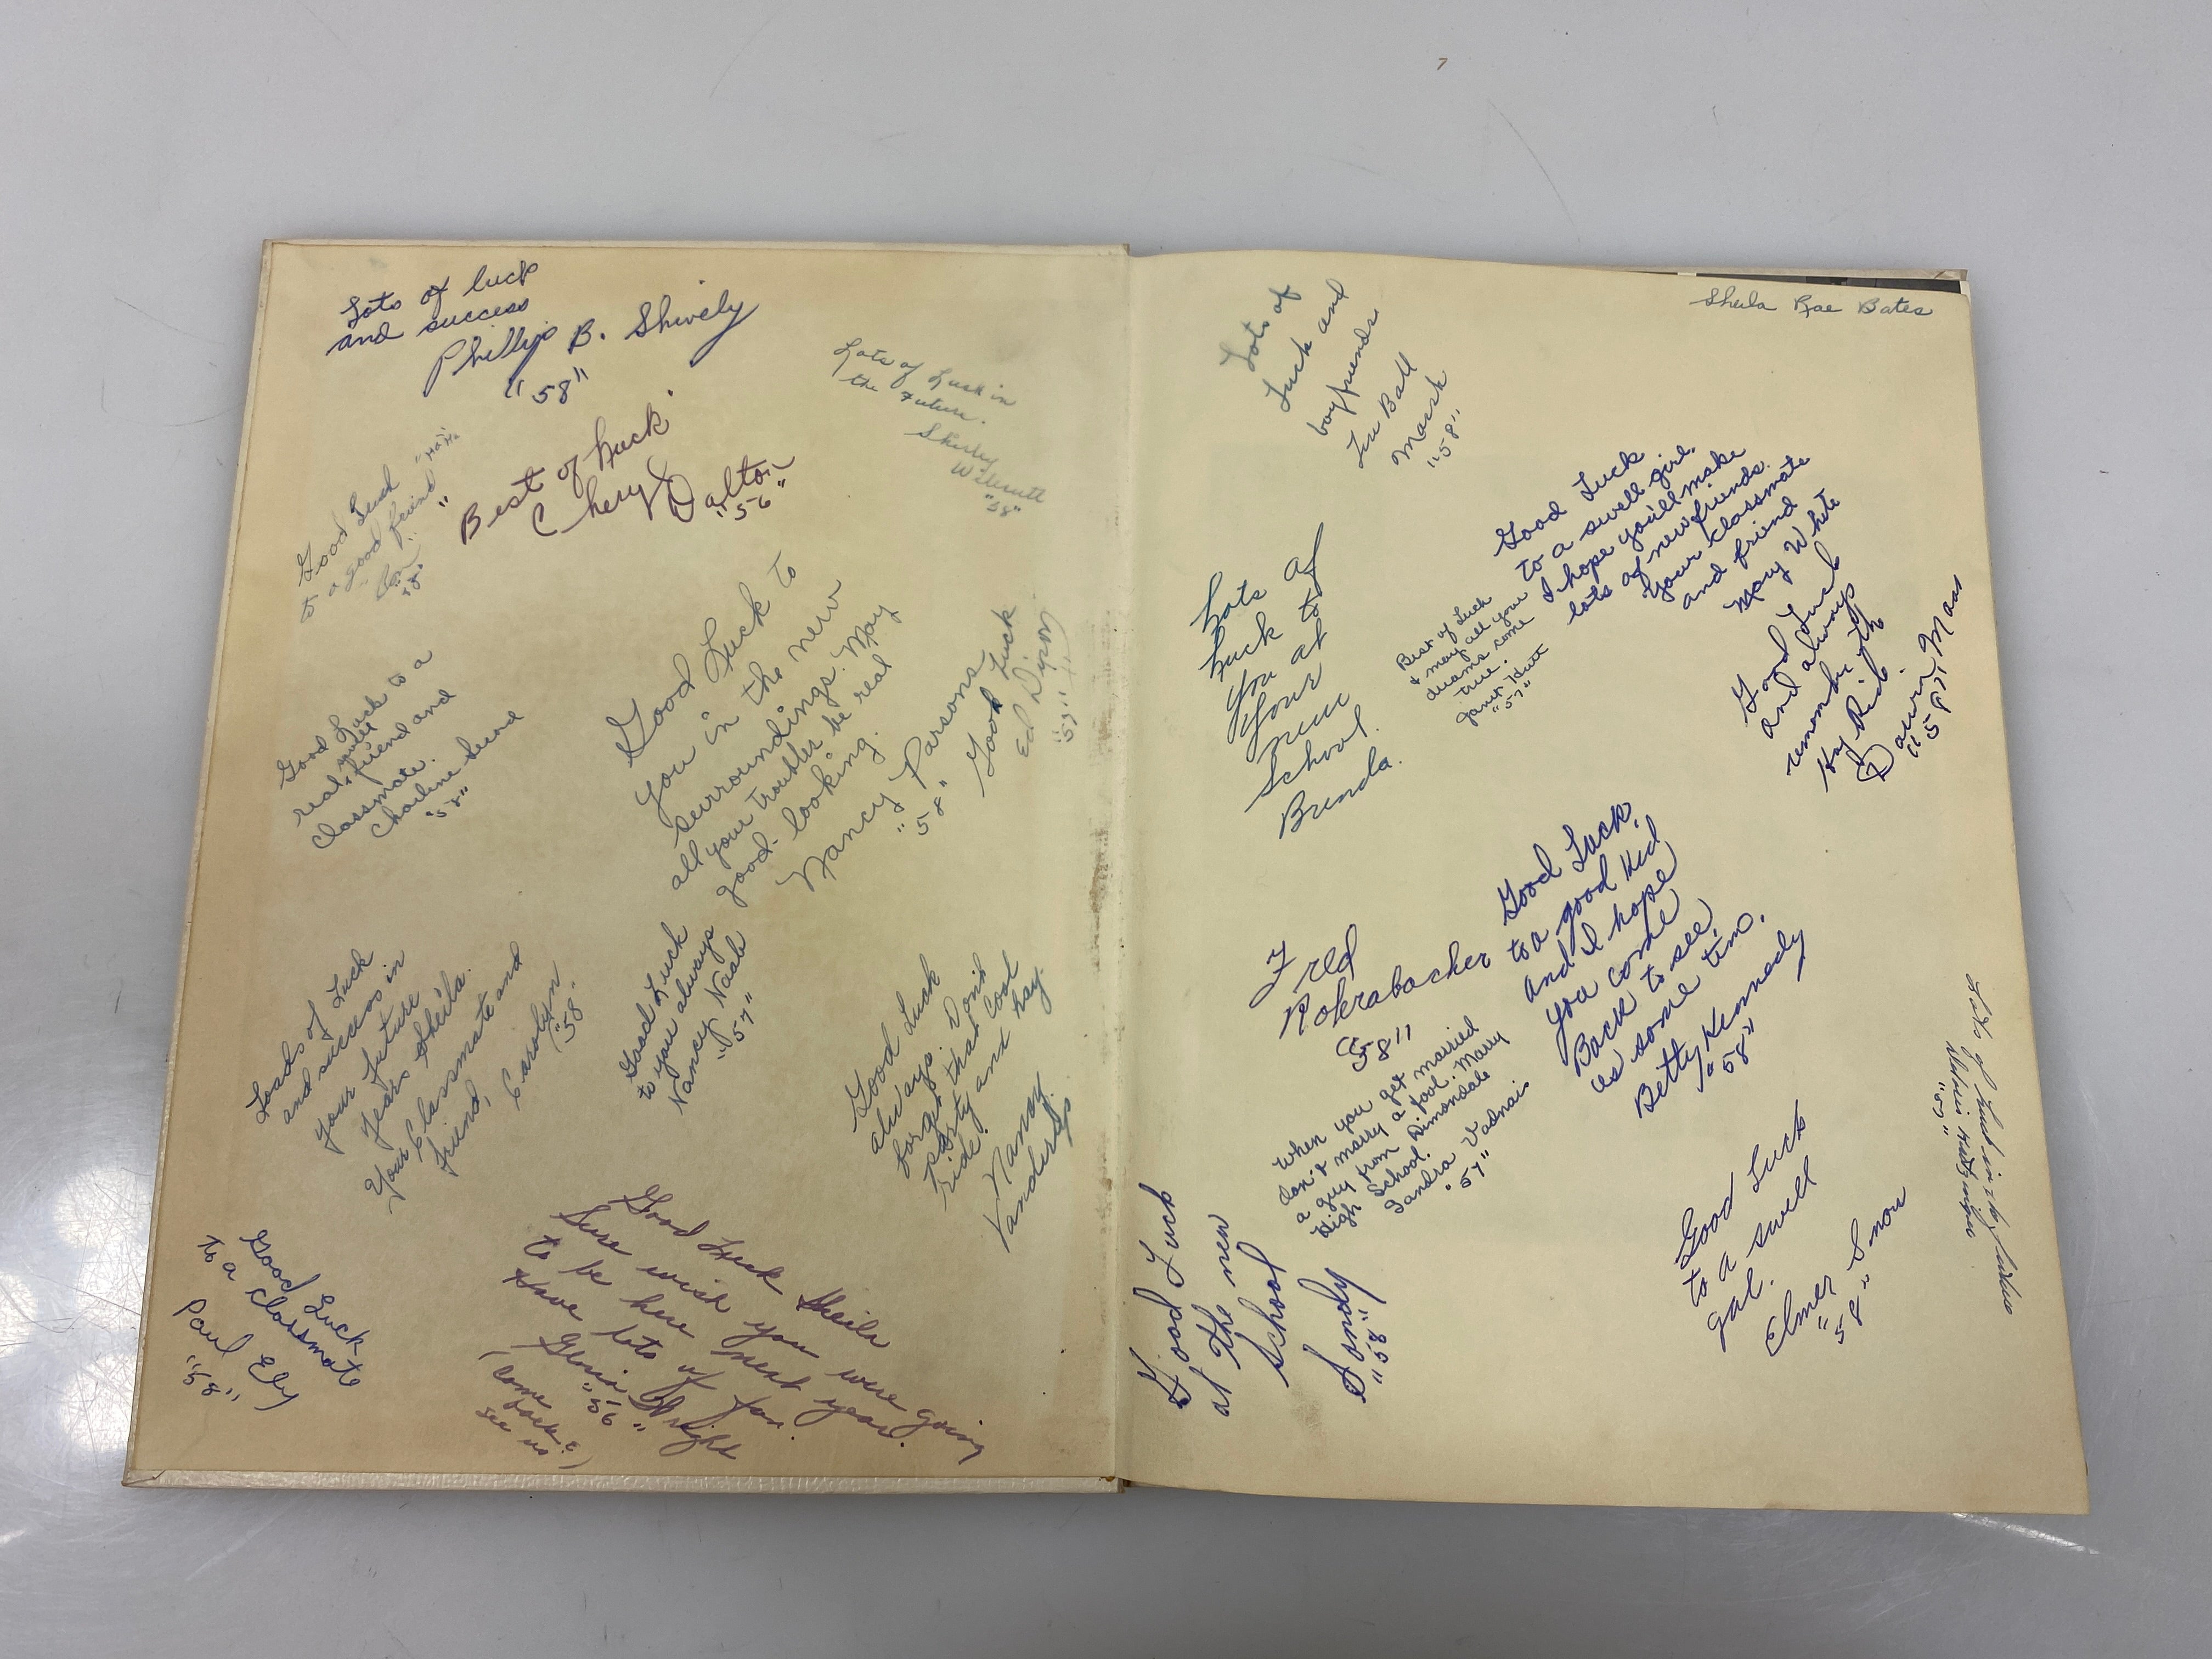 Lots of luck
and success
Phillip B. Shively
"58"
Lots of Luck in
the Future.
Shirley
"58"
Best of Luck
Cheryl Dalton
"56"
Good Luck "HaHa"
to a good friend"
"58"
Good Luck to
you in the new
surroundings. May
all your troubles be real
good-looking.
Nancy Parsons
"58"
Good Luck
Ed Dixon
"57"
Good Luck to a
real swell friend and
classmate.
Charlene
"58"
Loads of Luck
and success in
your future
years Sheila.
Your Classmate and
friend,
Carolyn
"58"
Good Luck
to you always
Nancy Nash
"57"
Good Luck
always. Don't
forget that cool
party and hay
ride.
Nancy
Vanderlip
Good Luck
to a classmate
Paul Ely
"58"
Good Luck Sheila
Sure wish you were going
to be here next year.
Have lots of fun.
Gloria Wright
"56"
(Come
back &
see us)
Sheila Rae Bates
Lots of
Luck and
boyfriends
Lu Ball
Marsh
"58"
Good Luck
to a swell girl.
I hope you'll make
lots of new friends.
Your classmate
and friend
Mary White
Lots of
Luck to
You at
Your
new
School.
Brenda.
Best of Luck
& may all your
dreams come
true.
Janet Hutt
"57"
Good Luck
and always
remember the
Hay Ride
Dawin Maas
"58"
Good Luck,
to a good Kid
and I hope
you come
Back to see
us some tim.
Betty Kennedy
"58"
Fred
Rohrabacher
"58"
When you get married
don't marry a fool. Marry
a guy from Dimondale
High School.
Sandra Vadnais
"57"
Good Luck
at the new
School
Sandy
"58"
Good Luck
to a swell
gal.
Elmer Snow
"58"
Lots of Luck in the future
"57"